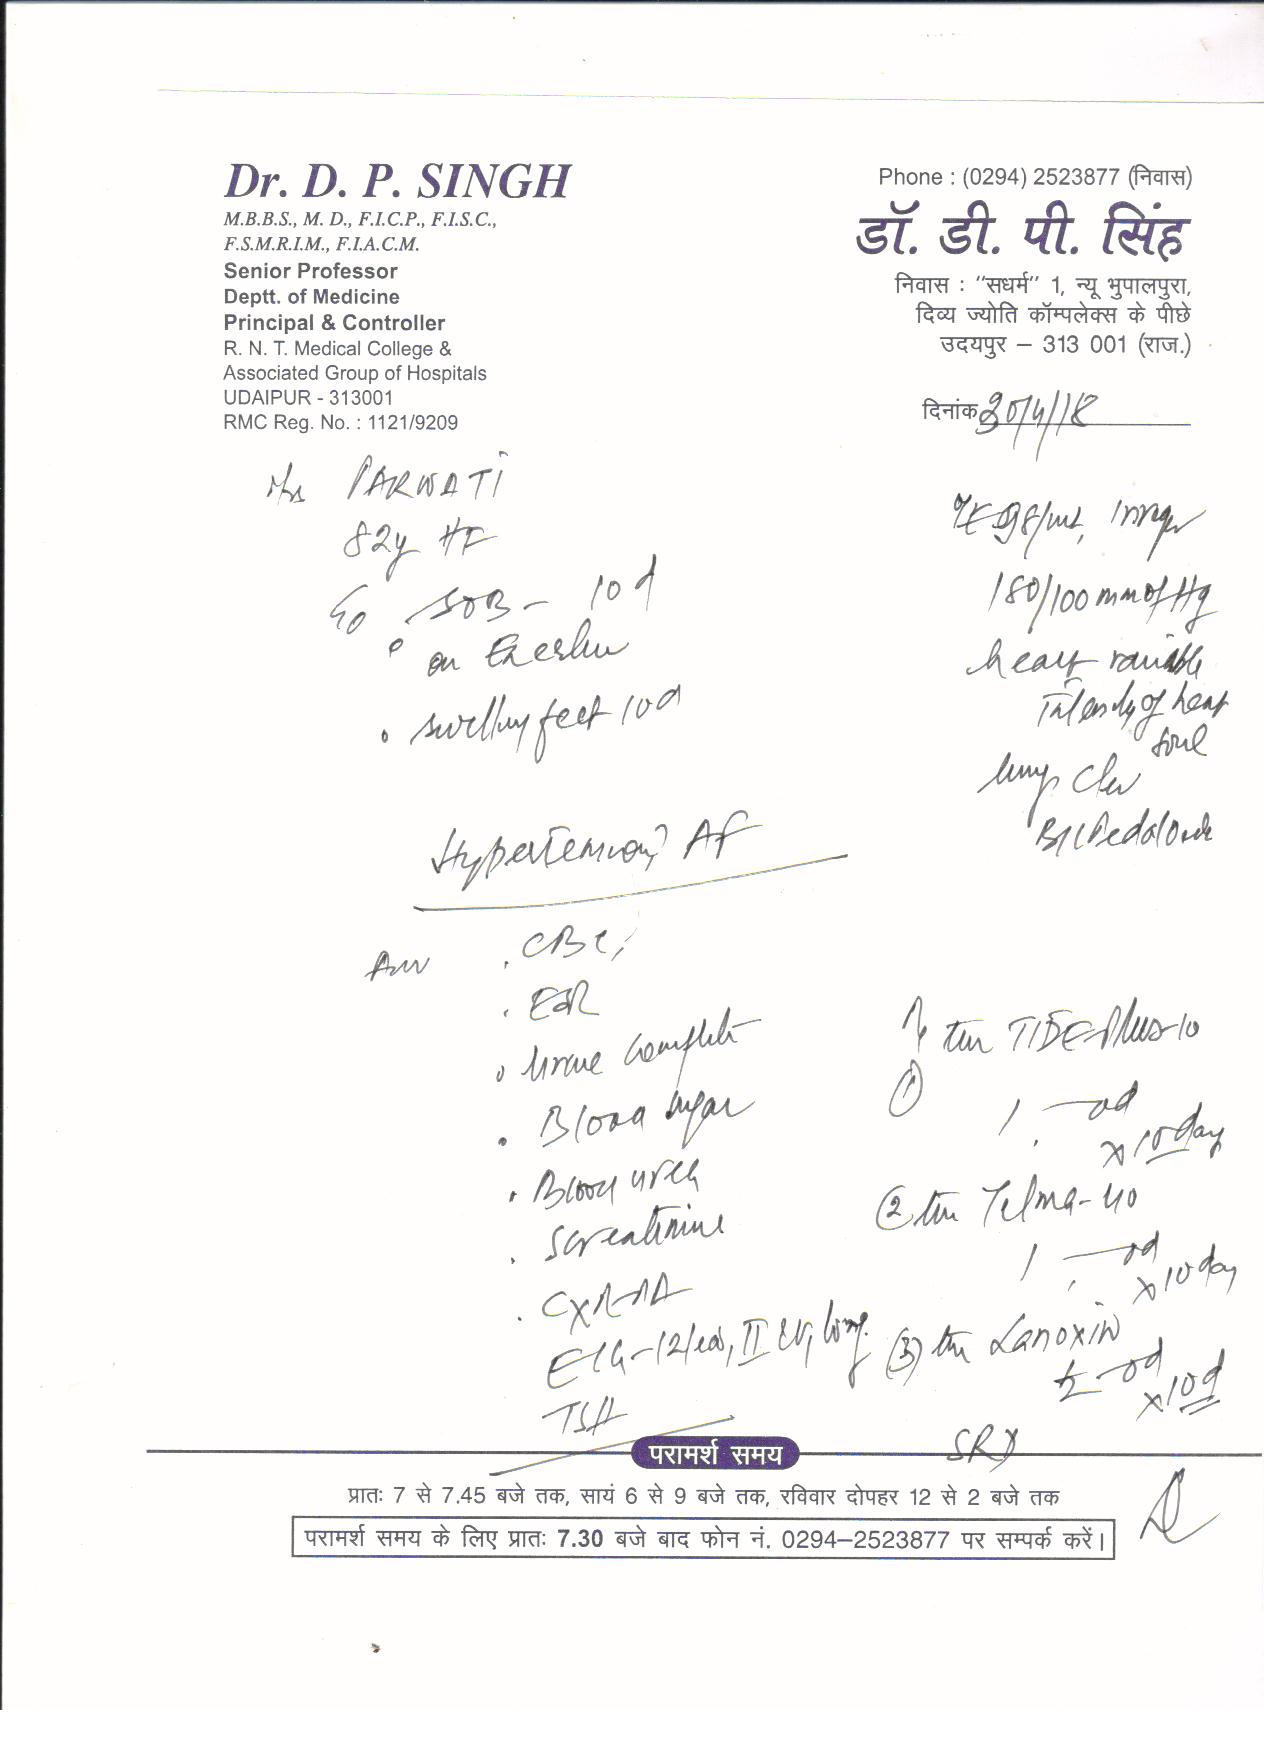 Dr. D. P. SINGH
M.B.B.S., M. D., F.I.C.P., F.I.S.C.,
F.S.M.R.I.M., F.I.A.C.M.
Senior Professor
Deptt. of Medicine
Principal & Controller
R. N. T. Medical College &
Associated Group of Hospitals
UDAIPUR - 313001
RMC Reg. No. : 1121/9209
Phone : (0294) 2523877 (निवास)
डॉ. डी. पी. सिंह
निवास : "सधर्म" 1, न्यू भुपालपुरा,
दिव्य ज्योति कॉम्पलेक्स के पीछे
उदयपुर – 313 001 (राज.)
दिनांक 30/4/18
Mrs PARWATI
82y HF
C/o SOB - 10 d
on Exertion
• swelling feet 10d
98/mt,
180/100 mm of Hg
heart variable
Intensity of heart
sound
lung clear
B/L Pedal
Hypertension? AF
Adv . CBC,
. ESR
. Urine Complete
. Blood sugar
. Blood urea
. S creatinine
. CXR-PA
ECG-12 lead, II long.
TSH
① TIDE Plus-10
1 - od
x 10 day
② Telma-40
1 - od
x 10 day
③ Lanoxin
½ - od
x 10 d
परामर्श समय
प्रातः 7 से 7.45 बजे तक, सायं 6 से 9 बजे तक, रविवार दोपहर 12 से 2 बजे तक
परामर्श समय के लिए प्रातः 7.30 बजे बाद फोन नं. 0294–2523877 पर सम्पर्क करें।